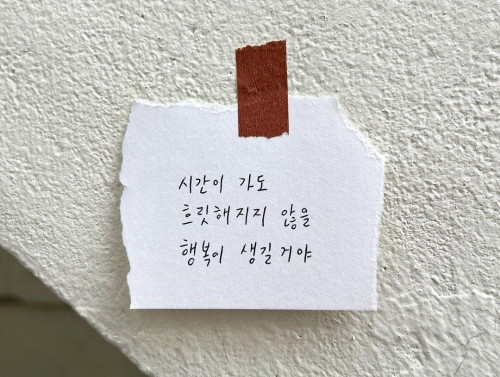 시간이 가도
흐릿해지지 않을
행복이 생길거야